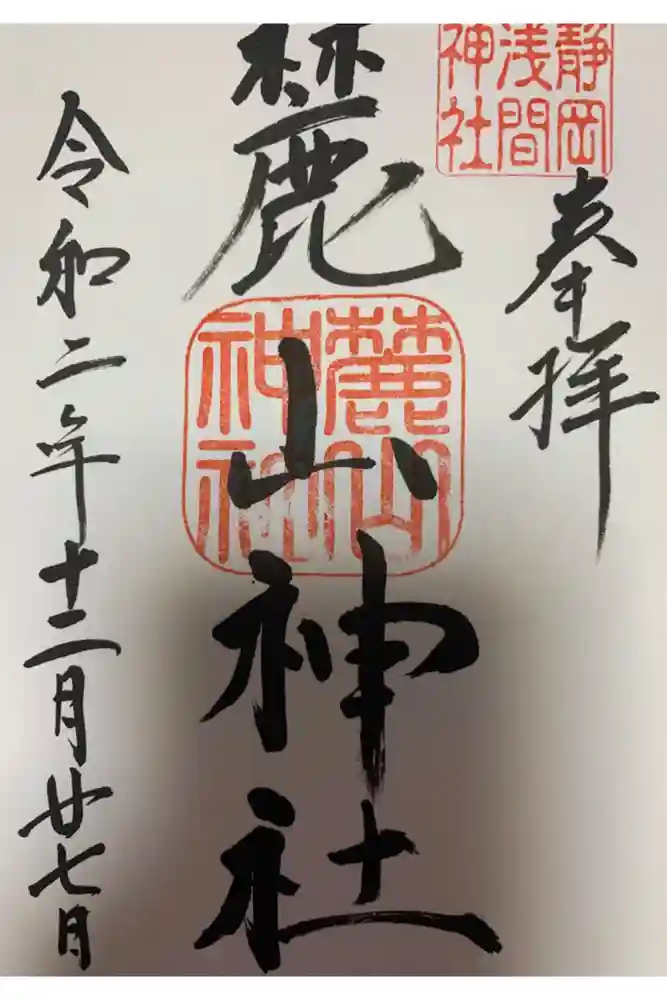 奉拝
静岡
浅間
神社
麓山神社
麓山
神社
令和二年十二月廿七日